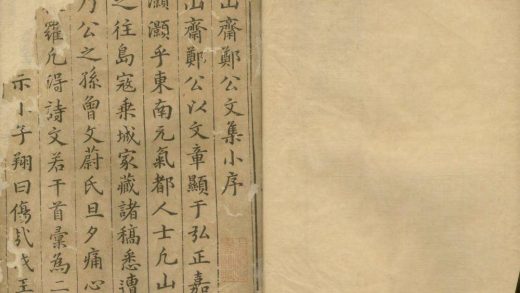 山齋鄭公文集小序
山齋鄭公以文章顯于弘正嘉
灝灝乎東南元氣都人士凡山
之往島寇乘城家藏諸稿悉遭
乃公之孫曾文蔚氏旦夕痛心
羅凡得詩文若干首彙為二
示小子翔曰傷哉